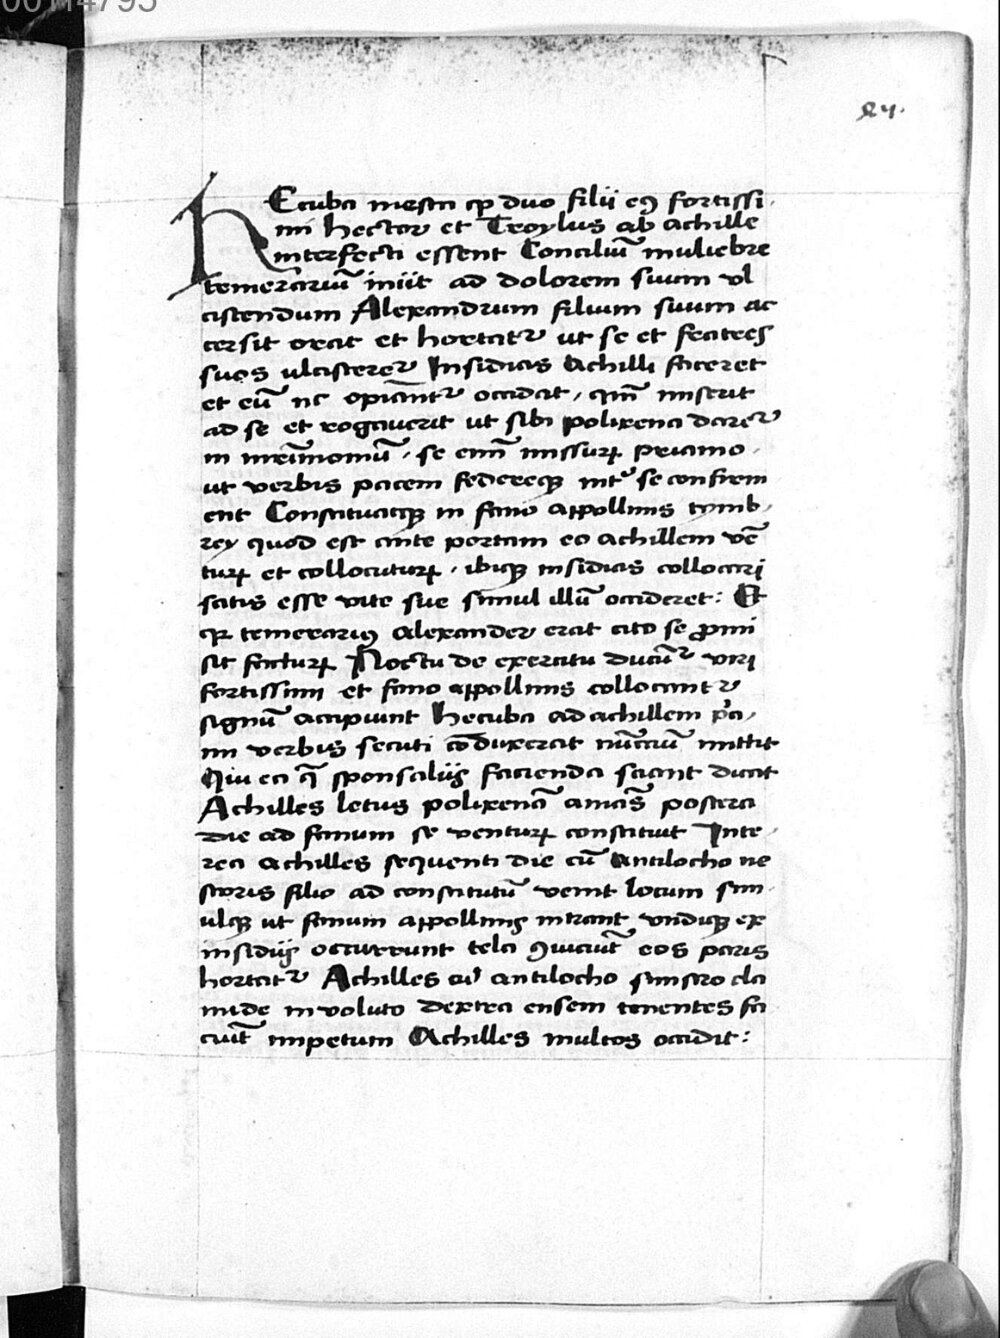 00114795
24.
HEcuba mesta qꝫ duo filij eꝰ fortissi
mi hector et Troylus ab achille
interfecti essent Conciliū muliebre
temerariū iniit ad dolorem suum vl
ciscendum Alexandrum filium suum ac
cersit orat et hortatr̄ ut se et fratres
suos ulcisceretr̄ Insidias Achilli faceret
et eū nc̄ opinantr̄ occidat, qm̄ miserit
ad se et rogauerit ut sibi polixena daretr̄
in mr̄imoniū, se enī missurꝝ Priamo,
ut verbis pacem federeqꝫ intʳ se confirm
ent Constituatqꝫ in fano appollinis tymb
rey quod est ante portam eo achillem vē
turꝝ et collocuturꝝ, ibiqꝫ insidias collocari
satis esse vite sue simul illū occideret: Et
qꝛ temerariꝰ Alexander erat cito se ꝓmi
sit facturꝝ Noctu de exercitu ducūtr̄ viri
fortissimi et fano appollinis collocantr̄
signū accipiunt hecuba ad achillem pͥa,
mi verbis secuti cōduxerat nūciū mittit
Qui ea q̄ sponsalijs facienda sciant dicat
Achilles letus polixenā amās postera
die ad fanum se venturꝝ constituit Inte
rea Achilles sequenti die cū Antilocho ne
storis filio ad constitutū venit locum sim
ulqꝫ ut fanum appollinis intrant vndiqꝫ ex
insidijs occurrunt tela ꝯiiciūt eos paris
hortatr̄ Achilles cū antilocho sinistro cla
mide inuoluto dextra ensem tenentes fa
ciūt impetum Achilles multos occidit: